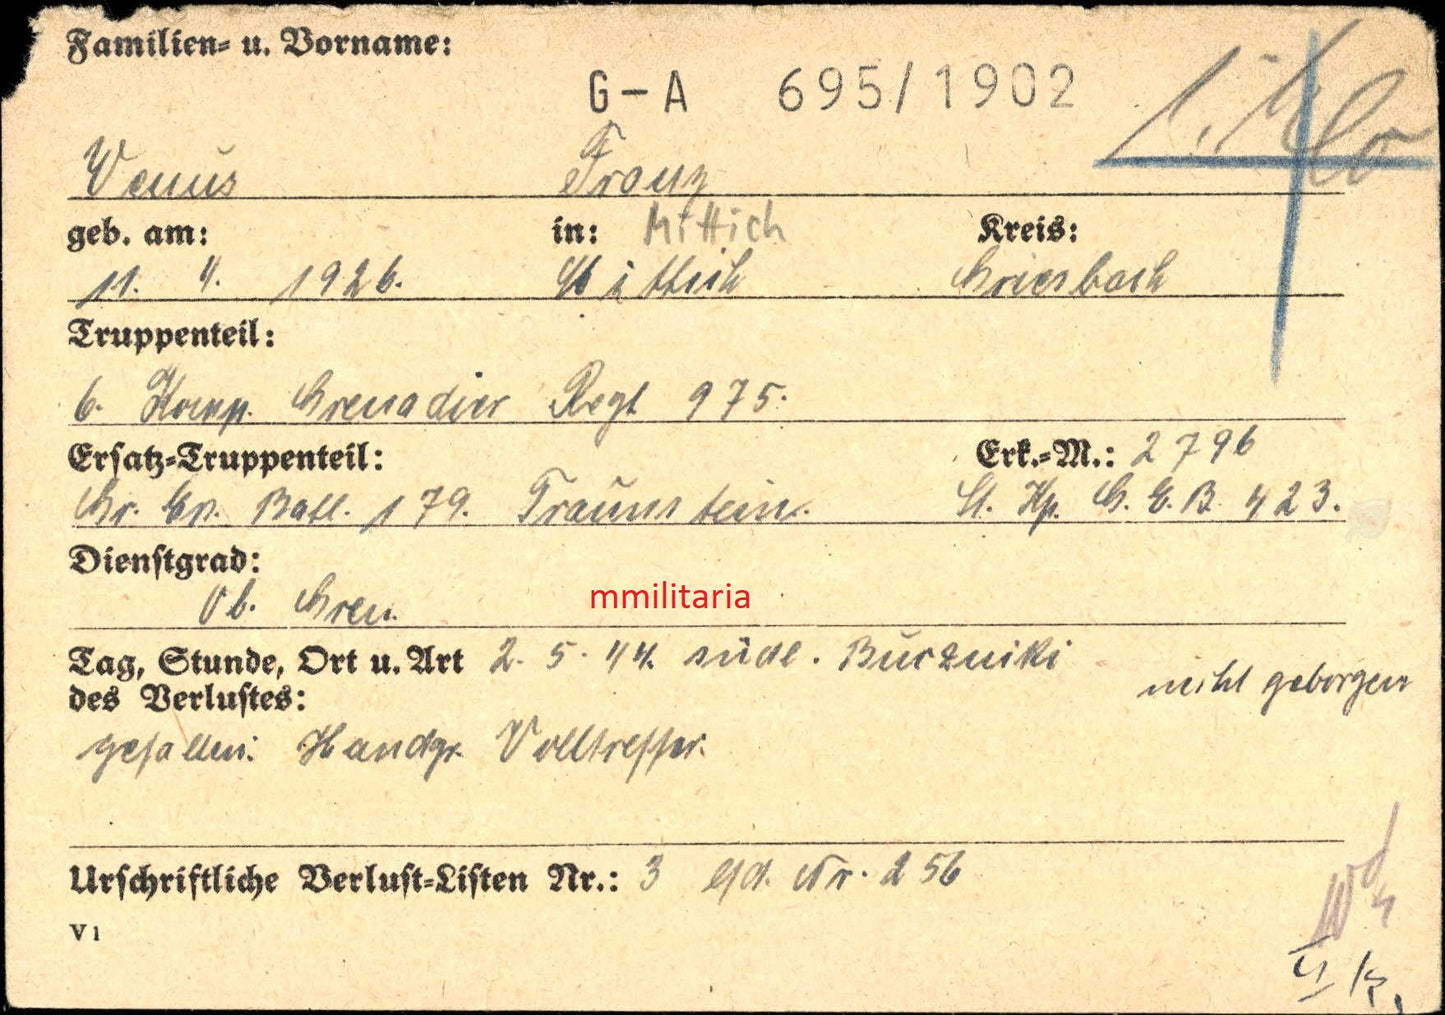 Familien- u. Vorname:
G-A 695/1902
Venus Franz
geb. am: in: Mittich Kreis:
11. 4. 1926. Mittich Griesbach
Truppenteil:
6. Komp. Grenadier Regt 975.
Ersatz-Truppenteil: Erk.-M.: 2796
Gr. Ers. Batl. 179. Traunstein. St. Kp. G. E. B. 423.
Dienstgrad:
Ob. Gren.
mmilitaria
Tag, Stunde, Ort u. Art 2. 5. 44. südl. Bučzniki
des Verlustes: nicht geborgen
gefallen: Handgr. Volltreffer.
Urschriftliche Verlust-Listen Nr.: 3 lfd. Nr. 256
V1